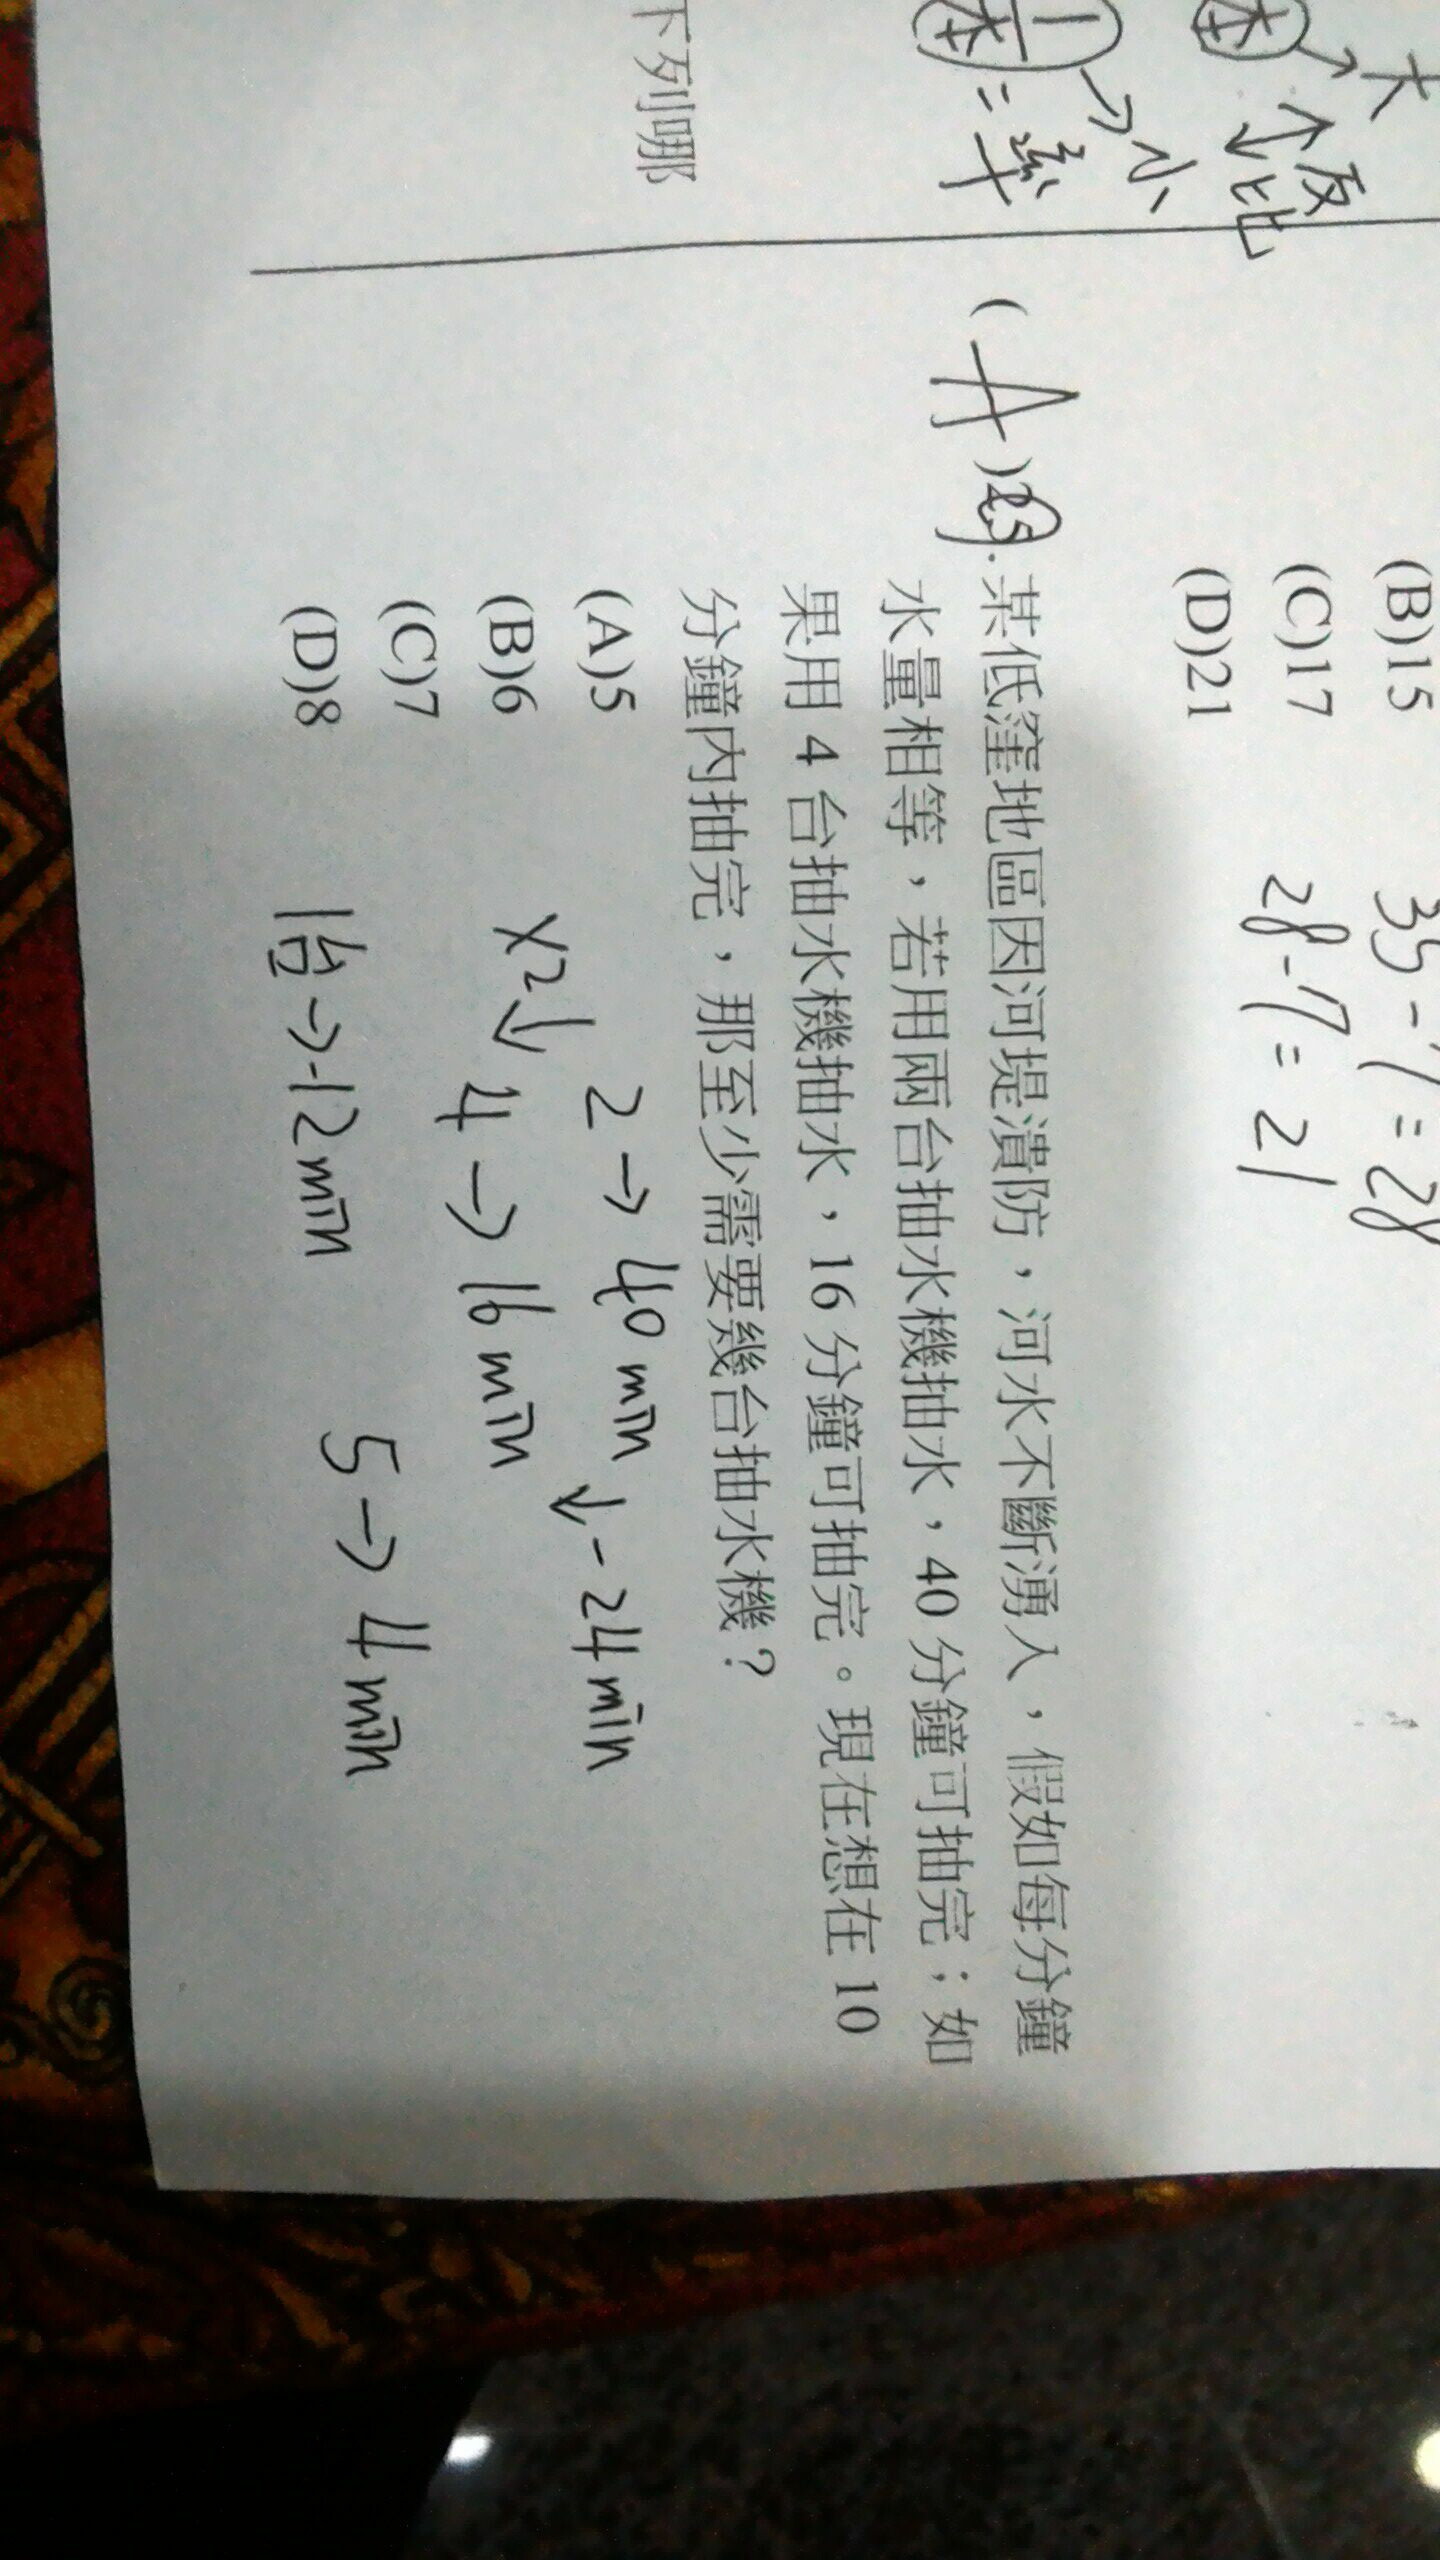 大
本 → ↑↓ 反比
1/本 = 率 → 小
下列哪
(B)15 35-7=28
(C)17 28-7=21
(D)21
(A)25.某低窪地區因河堤潰防，河水不斷湧入，假如每分鐘
水量相等，若用兩台抽水機抽水，40分鐘可抽完；如
果用4台抽水機抽水，16分鐘可抽完。現在想在10
分鐘內抽完，那至少需要幾台抽水機？
(A)5 2→40min ↓-24min
(B)6 x2↓ 4→16min
(C)7 5→4min
(D)8 1台→-12min